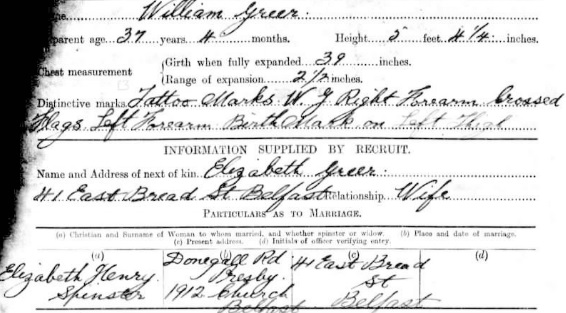 William Greer.
parent age 37 years 4 months. Height 5 feet 4 1/4 inches.
Chest measurement {Girth when fully expanded 39 inches.
{Range of expansion 2 1/2 inches.
Distinctive marks Tattoo Marks W. J Right Forearm Crossed
Flags Left Forearm Birth Mark on Left Thigh
INFORMATION SUPPLIED BY RECRUIT.
Name and Address of next of kin Elizabeth Greer:
41 East Bread St Belfast Relationship Wife
PARTICULARS AS TO MARRIAGE.
(a) Christian and Surname of Woman to whom married, and whether spinster or widow. (b) Place and date of marriage.
(c) Present address. (d) Initials of officer verifying entry.
(a) (b) (c) (d)
Elizabeth Henry Donegall Rd 41 East Bread
Spinster Presby. St
1912 Church Belfast
Belfast